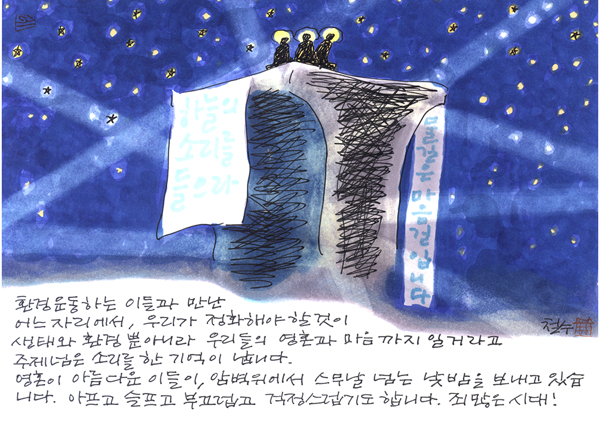 하늘의
소리를
들으라
물길은 마음길입니다
환경운동하는 이들과 만난
어느자리에서, 우리가 정화해야할것이
생태와 환경 뿐아니라 우리들의 영혼과 마음까지 일거라고
주제넘은 소리를 한 기억이 납니다.
영혼이 아름다운 이들이, 암벽위에서 스무날 넘는 낮밤을 보내고 있습
니다. 아프고 슬프고 부끄럽고 걱정스럽기도 합니다. 죄많은 시대!
철수